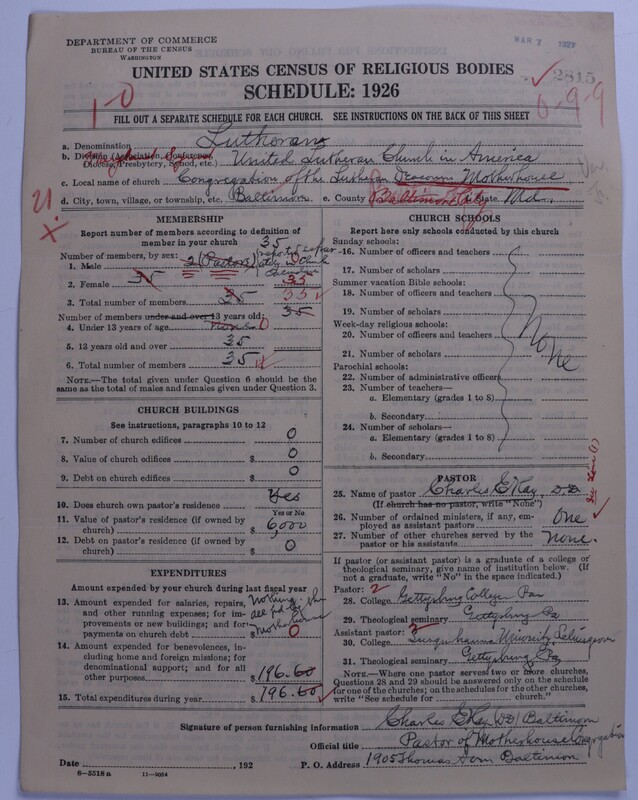 DEPARTMENT OF COMMERCE
BUREAU OF THE CENSUS
WASHINGTON
MAR 7 1927
UNITED STATES CENSUS OF RELIGIOUS BODIES
SCHEDULE: 1926
2815
1-0
0-9-9
FILL OUT A SEPARATE SCHEDULE FOR EACH CHURCH. SEE INSTRUCTIONS ON THE BACK OF THIS SHEET
a. Denomination Lutheran
b. Division (Association, Conference, Diocese, Presbytery, Synod, etc.) United Lutheran Church in America
c. Local name of church Congregation of the Lutheran Deaconess Motherhouse
d. City, town, village, or township, etc. Baltimore e. County Baltimore City f. State Md.
MEMBERSHIP
Report number of members according to definition of member in your church
Number of members, by sex: 35
1. Male 2 (Pastors) 0
2. Female 35 35
3. Total number of members 35 35
Number of members under and over 13 years old: 35
4. Under 13 years of age none 0
5. 13 years old and over 35
6. Total number of members 35
NOTE.—The total given under Question 6 should be the same as the total of males and females given under Question 3.
CHURCH BUILDINGS
See instructions, paragraphs 10 to 12
7. Number of church edifices 0
8. Value of church edifices $ 0
9. Debt on church edifices $ 0
10. Does church own pastor's residence Yes
Yes or No
11. Value of pastor's residence (if owned by church) $ 6,000
12. Debt on pastor's residence (if owned by church) $ 0
EXPENDITURES
Amount expended by your church during last fiscal year
13. Amount expended for salaries, repairs, and other running expenses; for improvements or new buildings; and for payments on church debt $ 0
Motherhouse
14. Amount expended for benevolences, including home and foreign missions; for denominational support; and for all other purposes $ 196.60
15. Total expenditures during year $ 196.60
CHURCH SCHOOLS
Report here only schools conducted by this church
Sunday schools:
16. Number of officers and teachers
17. Number of scholars
Summer vacation Bible schools:
18. Number of officers and teachers
19. Number of scholars
Week-day religious schools:
20. Number of officers and teachers
21. Number of scholars
None
Parochial schools:
22. Number of administrative officers
23. Number of teachers—
a. Elementary (grades 1 to 8)
b. Secondary
24. Number of scholars—
a. Elementary (grades 1 to 8)
b. Secondary
PASTOR
25. Name of pastor Charles E Hay, D.D.
(If church has no pastor, write "None")
26. Number of ordained ministers, if any, employed as assistant pastors One
27. Number of other churches served by the pastor or his assistants None.
If pastor (or assistant pastor) is a graduate of a college or theological seminary, give name of institution below. (If not a graduate, write "No" in the space indicated.)
Pastor: 2
28. College Gettysburg College Pa
29. Theological seminary Gettysburg Pa
Assistant pastor: 2
30. College Susquehanna University Selinsgrove
31. Theological seminary Gettysburg, Pa
NOTE.—Where one pastor serves two or more churches, Questions 28 and 29 should be answered only on the schedule for one of the churches; on the schedules for the other churches, write "See schedule for ............ church."
Signature of person furnishing information Charles E Hay (DD) Baltimore
Official title Pastor of Motherhouse Congregation
Date , 192 P. O. Address 1905 Thomas Ave Baltimore
6—5518 a 11—9054